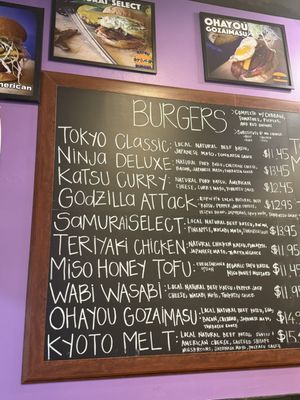 SELECT
OHAYOU
GOZAIMASU
American
BURGERS
COMPLETE W/ CABBAGE,
TOMATOES, PICKLES,
AND RED ONIONS
TOKYO CLASSIC: LOCAL NATURAL BEEF PATTY,
JAPANESE MAYO, TONKATSU SAUCE
$11.45
NINJA DELUXE: NATURAL PORK PATTY,
BACON, JAPANESE MAYO, TONKATSU SAUCE
$13.45
KATSU CURRY: NATURAL PORK PATTY, AMERICAN
CHEESE, CURRY MAYO, TONKATSU SAUCE
$12.45
GODZILLA ATTACK:
$12.95
SAMURAI SELECT: LOCAL NATURAL BEEF PATTY,
PINEAPPLE, WASABI MAYO, TERIYAKI SAUCE
$13.95
TERIYAKI CHICKEN: NATURAL CHICKEN PATTY, PINEAPPLE,
JAPANESE MAYO, TERIYAKI SAUCE
$11.
MISO HONEY TOFU: ORGANIC TOFU PATTY,
MISO HONEY MUSTARD
$11.45
WABI WASABI: LOCAL NATURAL BEEF PATTY, PEPPER JACK
CHEESE, WASABI MAYO, TERIYAKI SAUCE
$11.9
OHAYOU GOZAIMASU: LOCAL NATURAL BEEF PATTY, EGG,
BACON, CHEDDAR, JAPANESE MAYO,
TONKATSU SAUCE
$14.9
KYOTO MELT: LOCAL NATURAL BEEF PATTY,
AMERICAN CHEESE, SAUTEED SHIITAKE
MUSHROOMS, JAPANESE MAYO,
$15.4